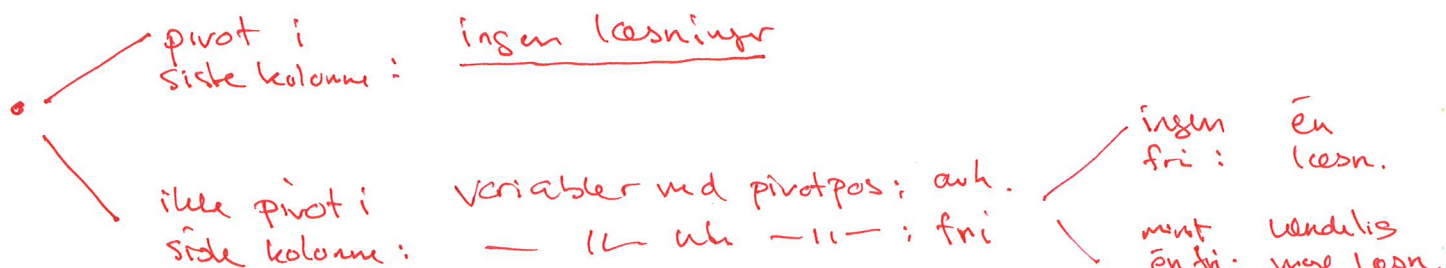 pivot i
siste kolonne :
ingen løsninger
ikke pivot i
siste kolonne :
variabler med pivotpos : avh.
— 〃 — uten — 〃 — : fri
ingen
fri :
én
løsn.
minst
én fri :
uendelig
mge løsn.